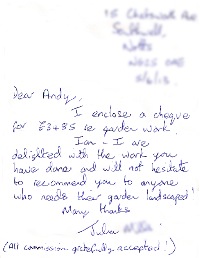 Dear Andy,
I enclose a cheque
for £3485 ie garden work.
Ian + I are
delighted with the work you
have done and will not hesitate
to recommend you to anyone
who needs their garden landscaped!
Many thanks
Julia
(All commission gratefully accepted!)